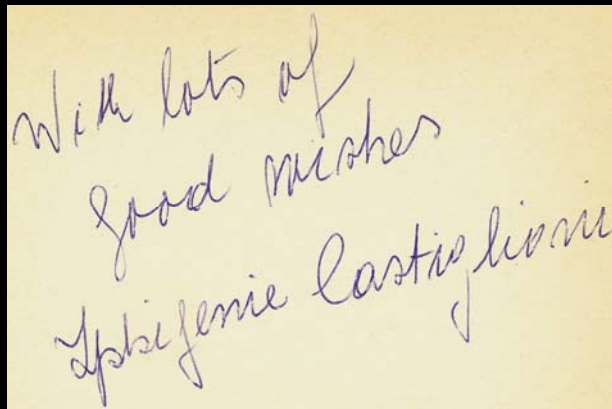 With lots of
good wishes
Iphigenie Castiglioni